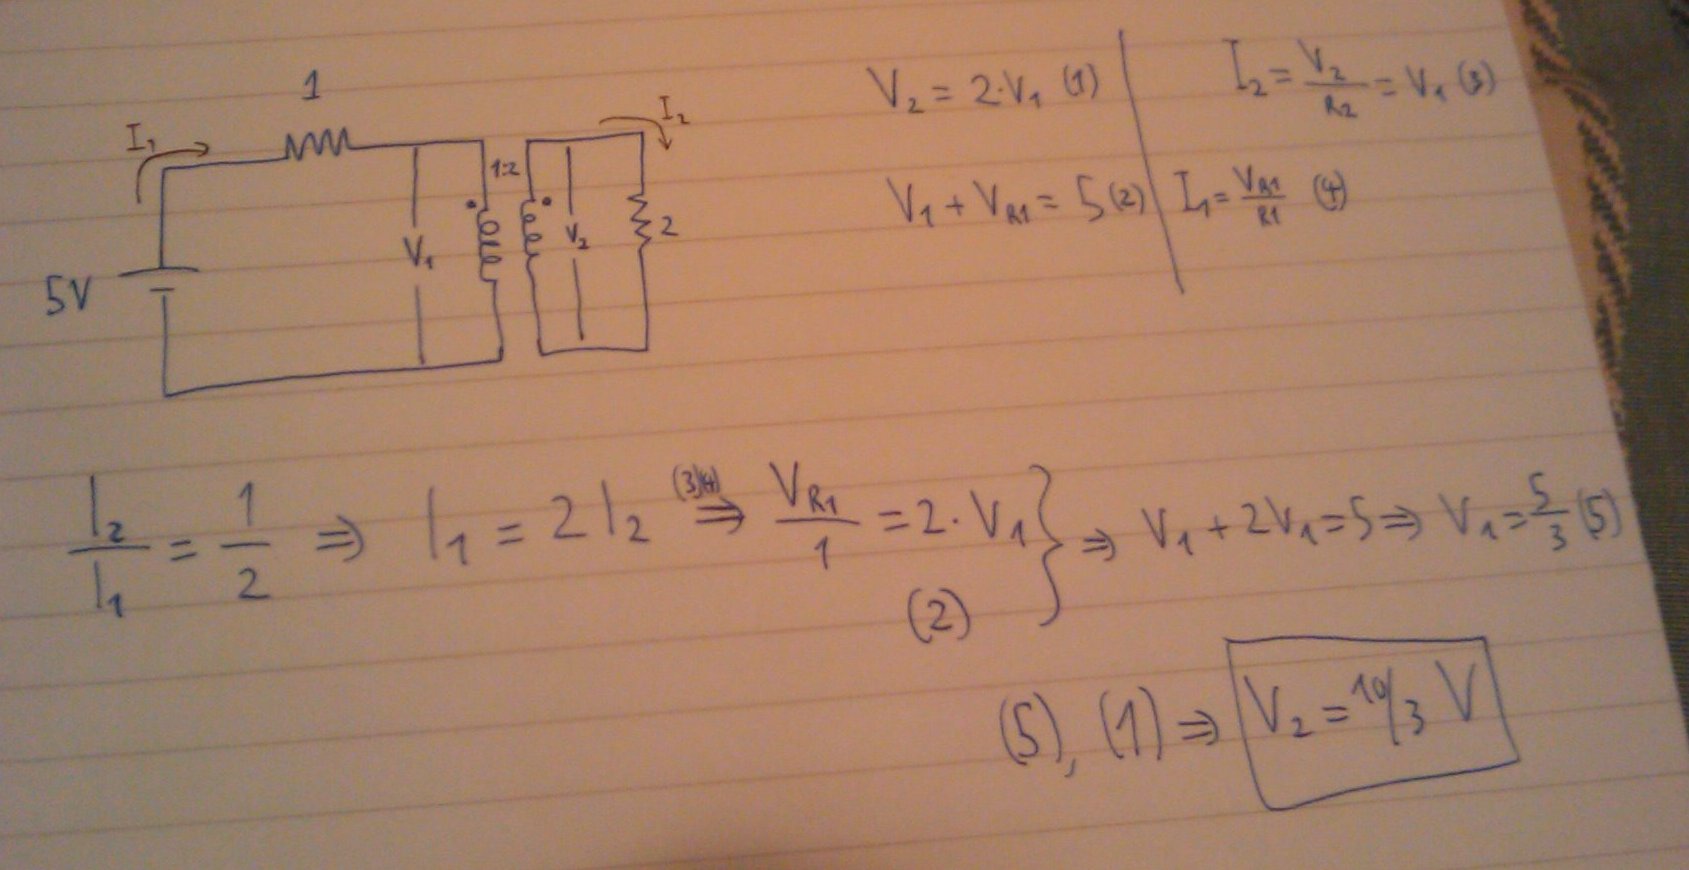 1
I₁
I₂
1:2
V₁
V₂
2
5V
V₂ = 2·V₁ (1)
I₂ = V₂/R₂ = V₁ (3)
V₁ + V_R1 = 5 (2)
I₁ = V_R1/R1 (4)
I₂/I₁ = 1/2 ⇒ I₁ = 2I₂ (3)(4)⇒ V_R1/1 = 2·V₁ } ⇒ V₁ + 2V₁ = 5 ⇒ V₁ = 5/3 (5)
(2)
(5), (1) ⇒ V₂ = 10/3 V